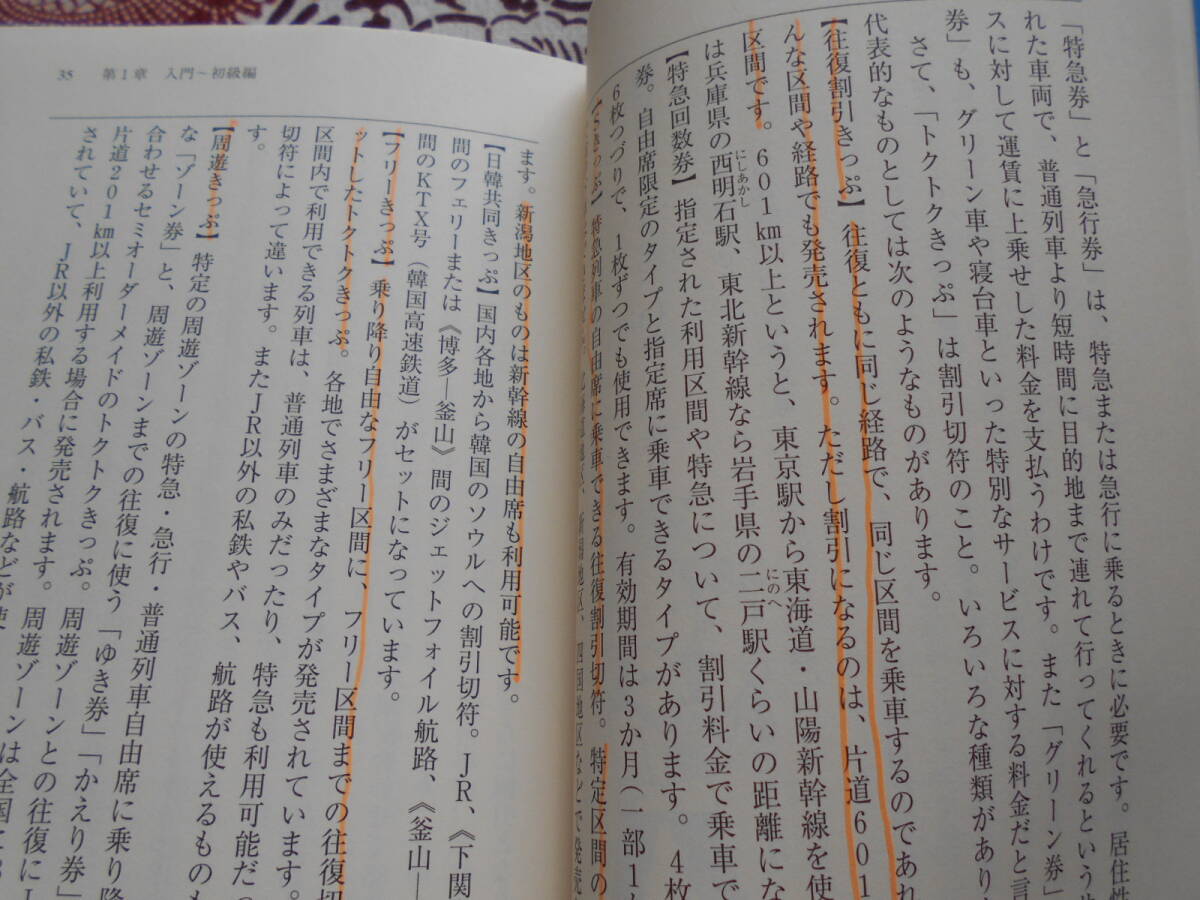 「特急券」と「急行券」は、特急または急行に乗るときに必要です。居住性
れた車両で、普通列車より短時間に目的地まで連れて行ってくれるという
スに対して運賃に上乗せした料金を支払うわけです。また「グリーン券」
券」も、グリーン車や寝台車といった特別なサービスに対する料金だと言
さて、「トクトクきっぷ」は割引切符のこと。いろいろな種類があり
代表的なものとしては次のようなものがあります。
【往復割引きっぷ】往復ともに同じ経路で、同じ区間を乗車するのであれ
んな区間や経路でも発売されます。ただし割引になるのは、片道601
区間です。601km以上というと、東京駅から東海道・山陽新幹線を使
は兵庫県の西明石駅、東北新幹線なら岩手県の二戸駅くらいの距離にな
にしあかし
にのへ
【特急回数券】指定された利用区間や特急について、割引料金で乗車で
券。自由席限定のタイプと指定席に乗車できるタイプがあります。4枚
6枚つづりで、1枚ずつでも使用できます。有効期間は3か月（一部1
きっぷ】特急列車の自由席に乗車できる往復割引切符。特定区間の
35 第1章 入門〜初級編
ます。新潟地区のものは新幹線の自由席も利用可能です。
【日韓共同きっぷ】国内各地から韓国のソウルへの割引切符。JR、《下関
間のフェリーまたは《博多―釜山》間のジェットフォイル航路、《釜山―
間のKTX号（韓国高速鉄道）がセットになっています。
【フリーきっぷ】乗り降り自由なフリー区間に、フリー区間までの往復切
ットしたトクトクきっぷ。各地でさまざまなタイプが発売されています。
区間内で利用できる列車は、普通列車のみだったり、特急も利用可能だっ
切符によって違います。またJR以外の私鉄やバス、航路が使えるものも
す。
【周遊きっぷ】特定の周遊ゾーンの特急・急行・普通列車自由席に乗り降
な「ゾーン券」と、周遊ゾーンまでの往復に使う「ゆき券」「かえり券」
合わせるセミオーダーメイドのトクトクきっぷ。周遊ゾーンとの往復にJ
片道201km以上利用する場合に発売されます。周遊ゾーンは全国に
されていて、JR以外の私鉄・バス・航路などが